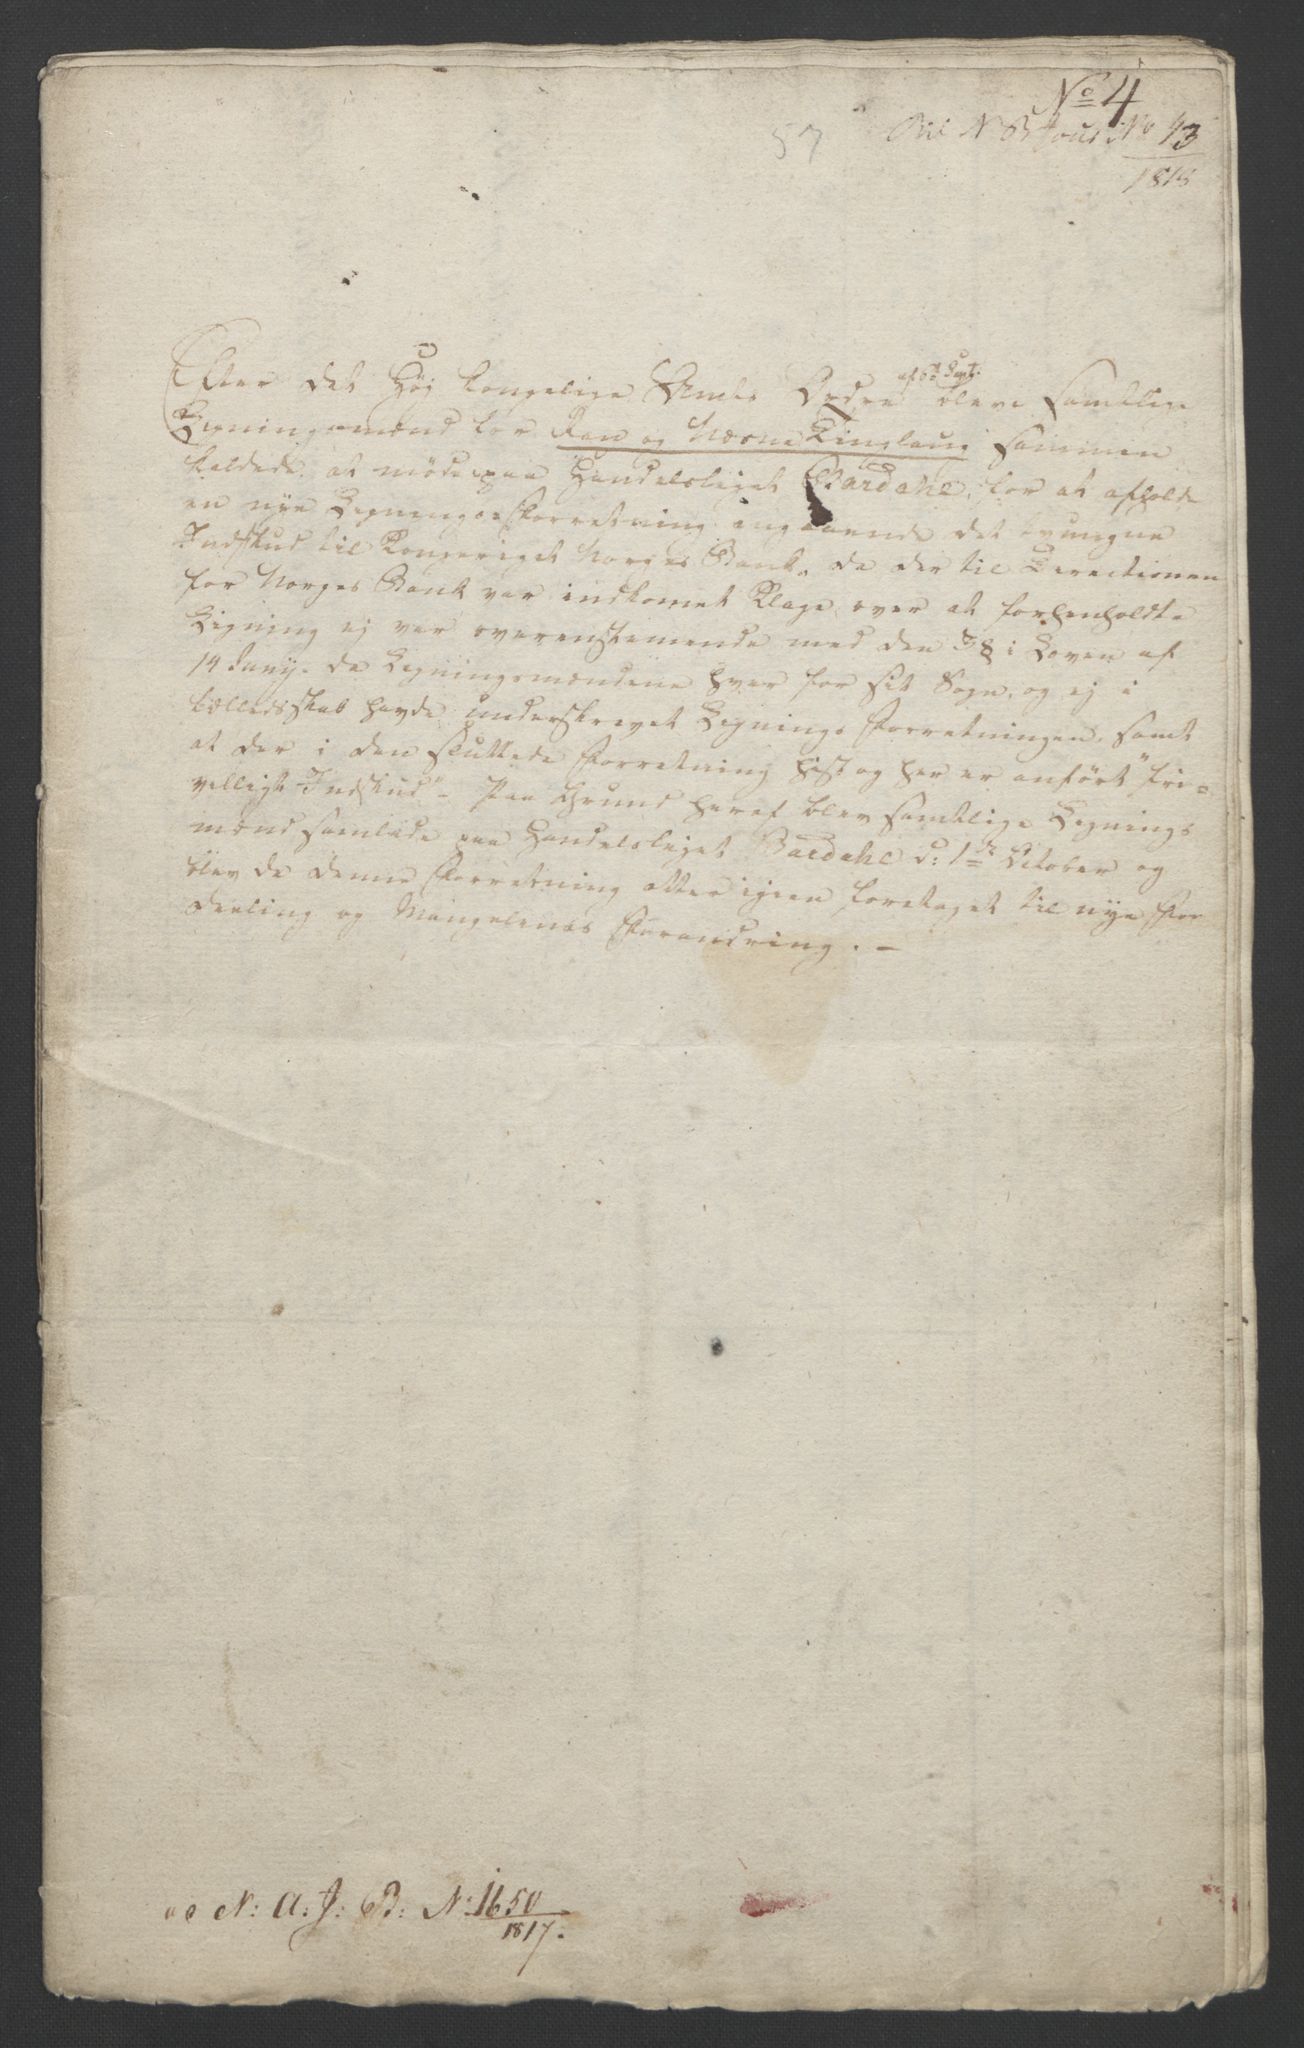 No 4
57 Bil N B Jour No 43
1818
Efter det Høj kongelige Amts Ordre af 6te Sept: bleve samtlige
Ligningsmænd for Ran og Næsne Tinglaug sammen
kaldede at møde paa Handelsteget Bardahl, for at afholde
en nye Lignings Forretning angaaende det tvungne
Indskud til Kongeriget Norges Bank, da der til Derectionen
for Norges Bank var indkomet Klage over at forhenholdte
Ligning ej var overenstemende med den § 8 i Loven af
14 Juny. da Ligningsmændene hver for sit Sogn, og ej i
fælledsskab havde underskrevet Lignings Forretningen, samt
at der i den sluttede Forretning hist og her er anført "fri=
villigt Indskud" - Paa Grund heraf blev samtlige Lignings
mænd samlede paa Handelsteget Bardahl d: 1te October og
blev da denne Forretning atter igien foretaget til nye For
deeling og Manglenes Forandring. -
N: A: J: B: No: 1650
1817.